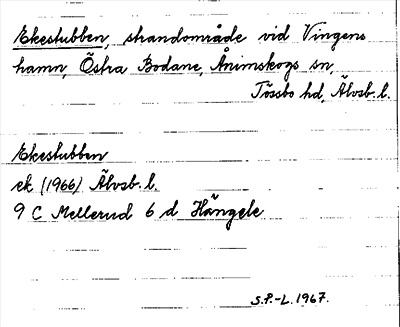 Ekestubben, strandområde vid Vingens
hamn, Östra Bodane, Ånimskogs sn,
Tössbo hd, Älvsb. l.
Ekestubben
ek (1966) Älvsb. l.
9 C Mellerud 6 d Hängele
S.P.-L. 1967.